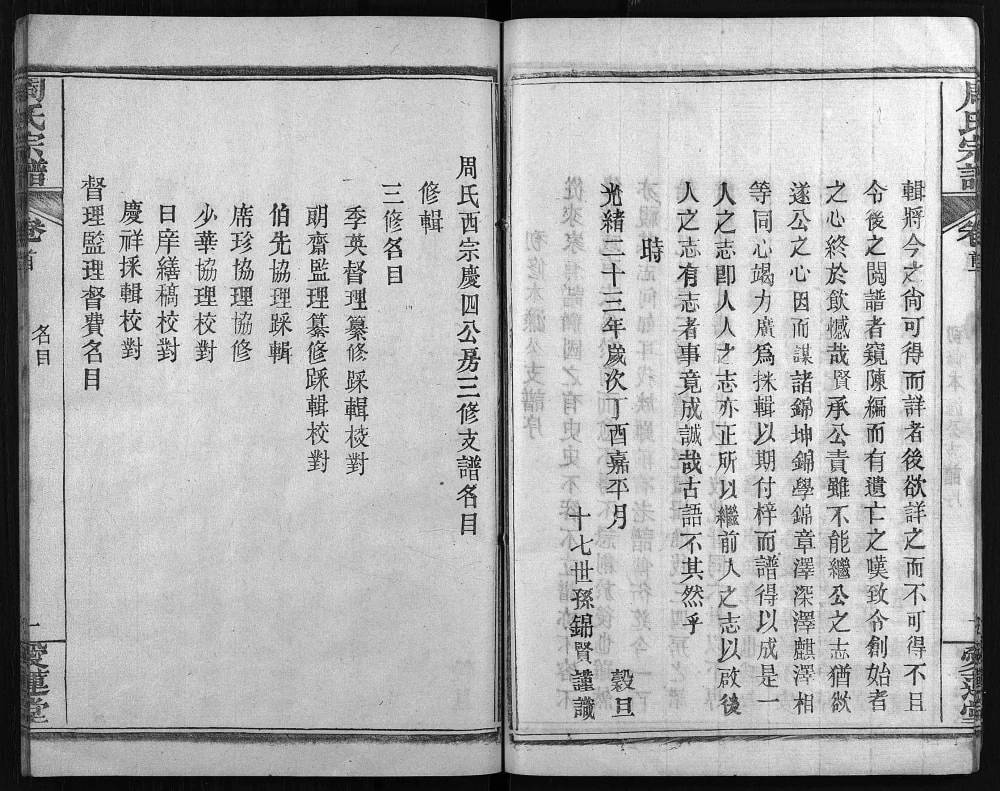 周氏宗譜
卷首
愛蓮堂
輯將今之尙可得而詳者後欲詳之而不可得不且
令後之閱譜者窺陳編而有遺亡之嘆致令創始者
之心終於飲憾哉賢承公責雖不能繼公之志猶欲
遂公之心因而謀諸錦坤錦學錦章澤深澤麒澤相
等同心竭力廣爲採輯以期付梓而譜得以成是一
人之志卽人人之志亦正所以繼前人之志以啟後
人之志有志者事竟成誠哉古語不其然乎
時
光緒二十三年歲次丁酉嘉平月
穀旦
十七世孫錦賢謹識
周氏西宗慶四公房三修支譜名目
修輯
三修名目
季英督理纂修踩輯校對
朗齋監理纂修踩輯校對
伯先協理踩輯
席珍協理協修
少華協理校對
日庠繕稿校對
慶祥採輯校對
督理監理督費名目
周氏宗譜
卷首
名目
一
愛蓮堂